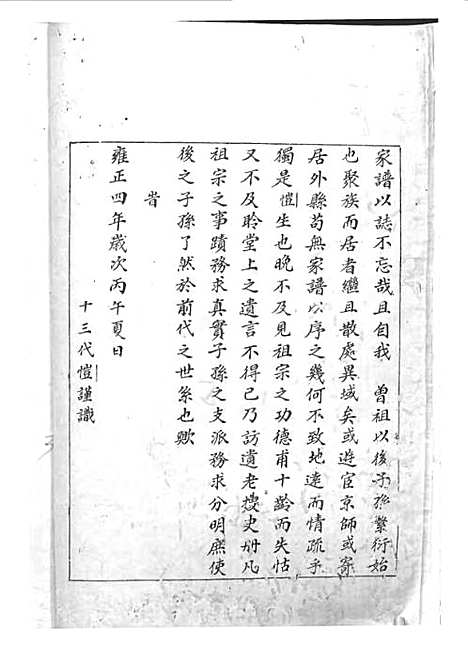 家譜以誌不忘哉且自我　曾祖以後子孫繁衍始
也聚族而居者繼且散處異域矣或遊宦京師或寄
居外縣苟無家譜以序之幾何不致地遠而情疏乎
獨是愷生也晚不及見祖宗之功德甫十齡而失怙
又不及聆堂上之遺言不得已乃訪遺老搜史册凡
祖宗之事蹟務求真實子孫之支派務求分明庶使
後之子孫了然於前代之世系也歟
旹
雍正四年歲次丙午夏日
十三代愷謹識